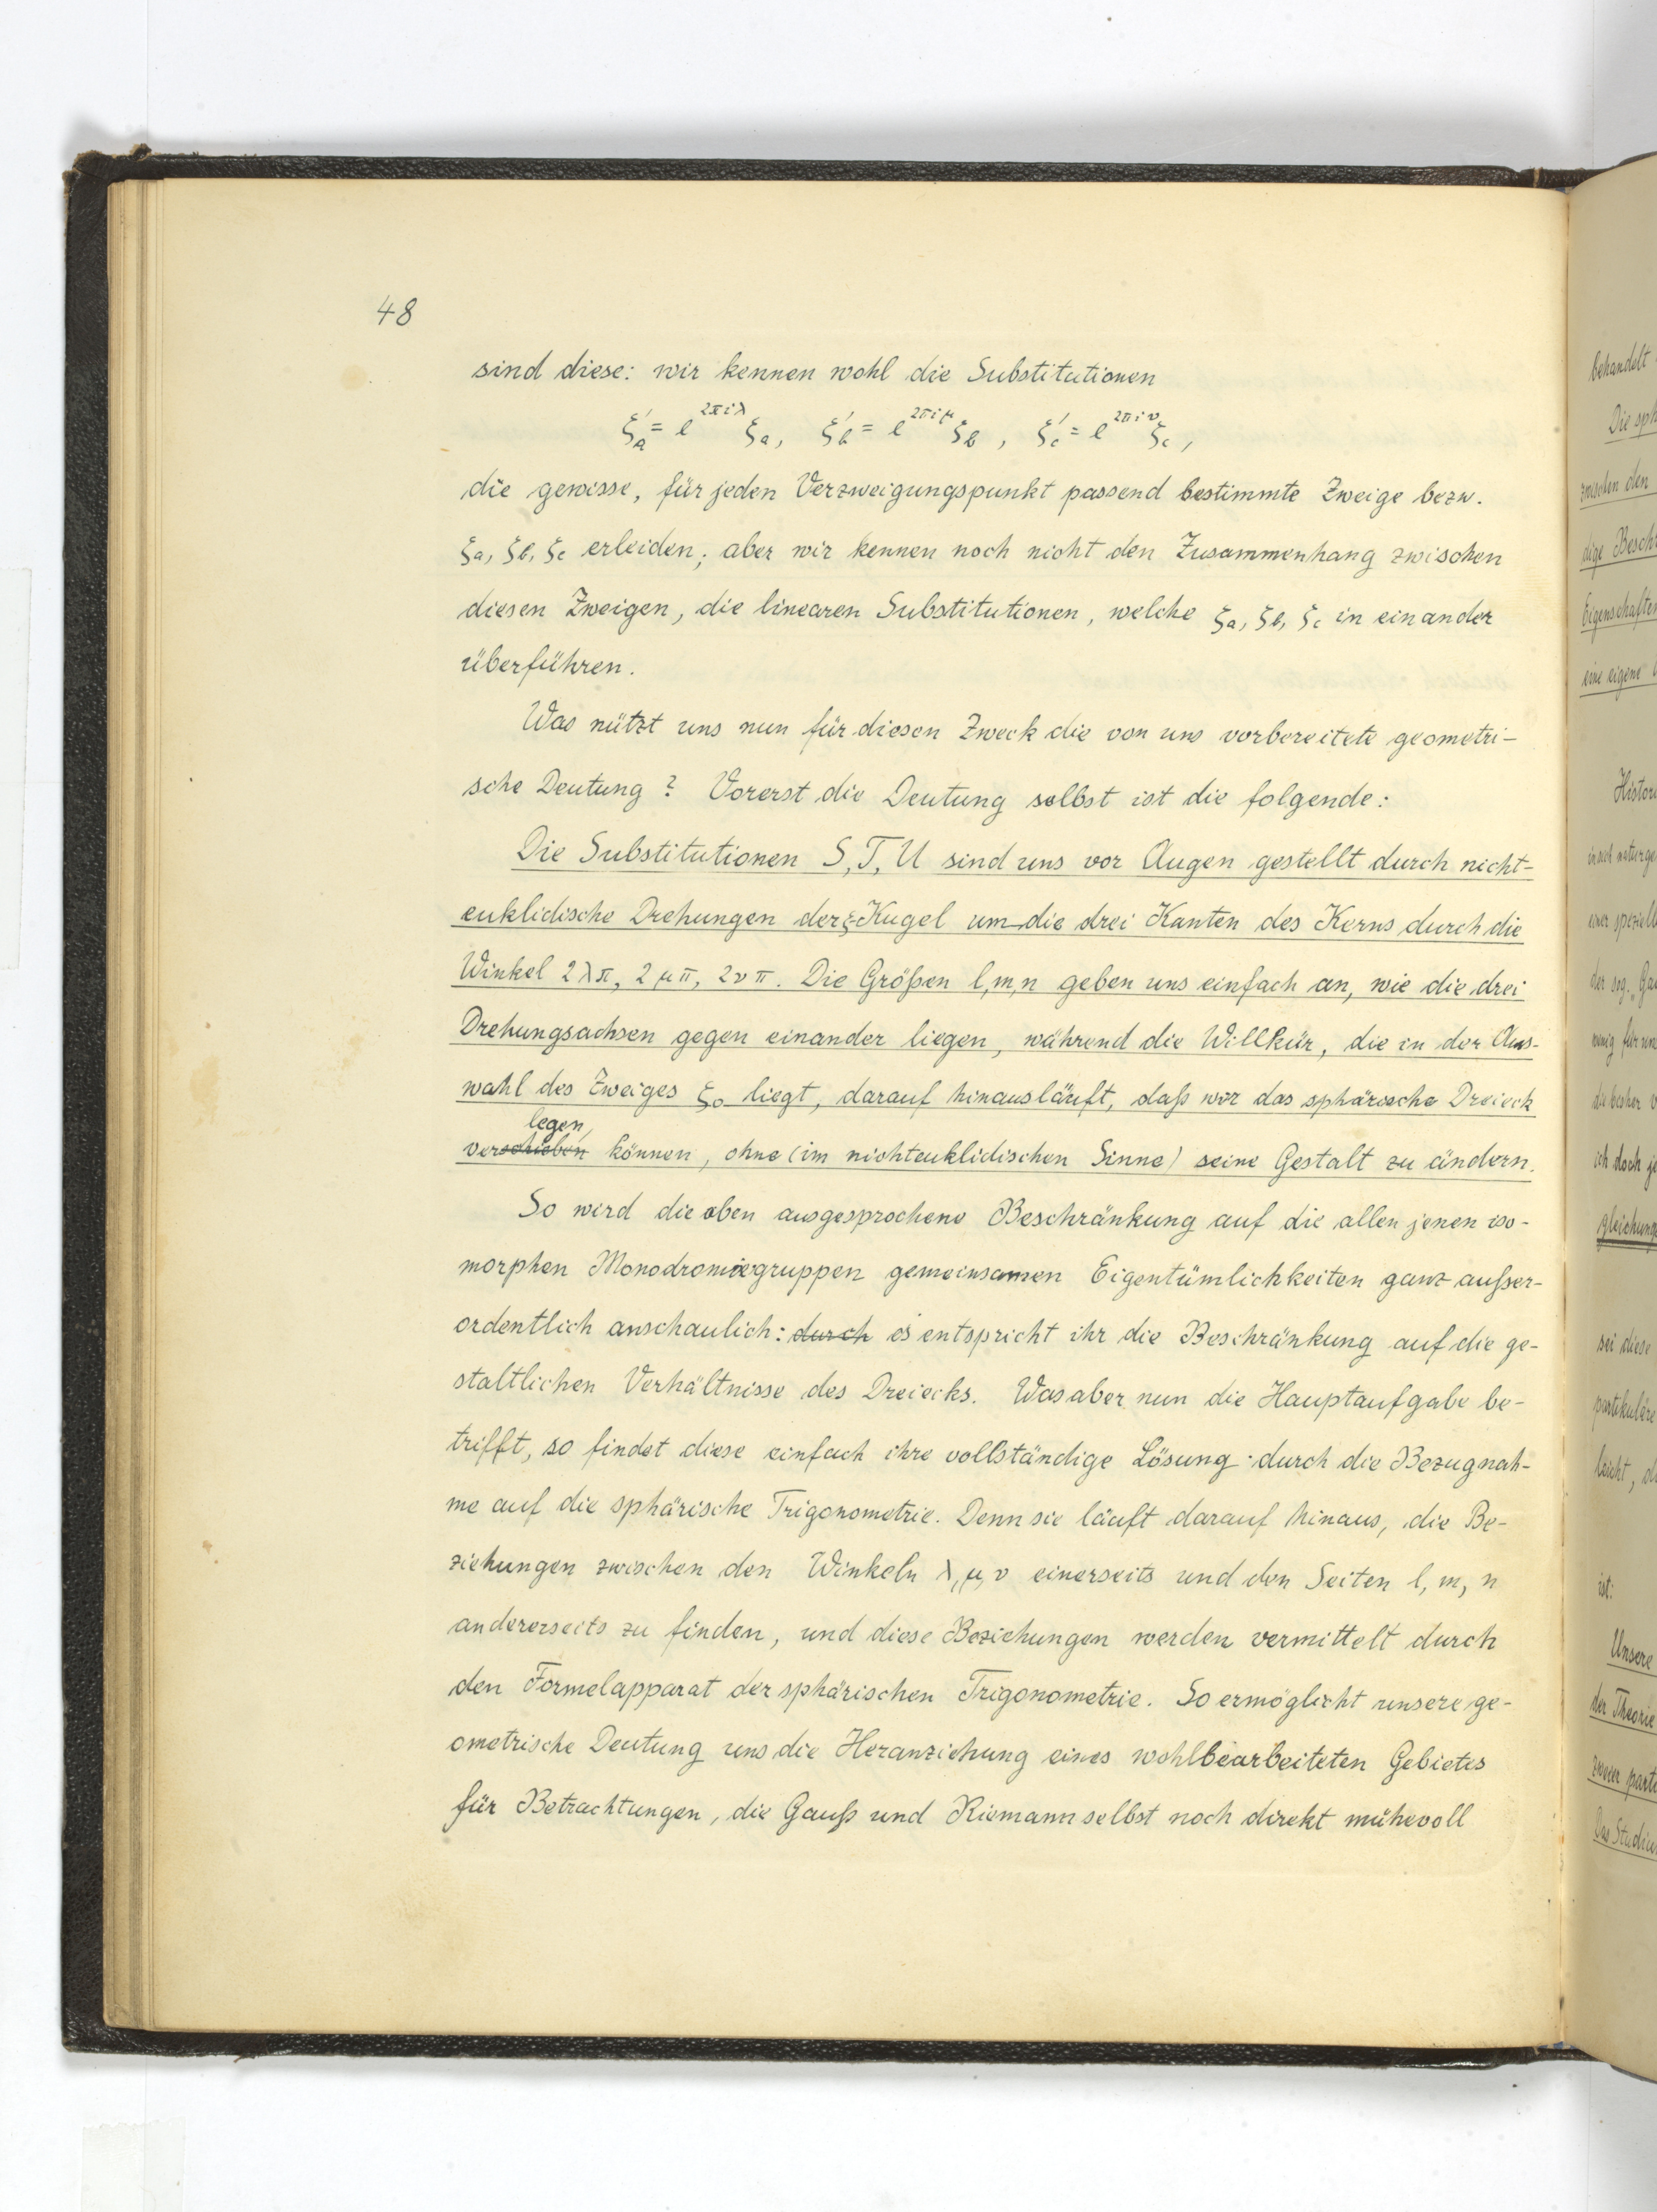 48
sind diese: wir kennen wohl die Substitutionen
ξ'ₐ = e^{2πiλ} ξₐ, ξ'_b = e^{2πiμ} ξ_b, ξ'_c = e^{2πiν} ξ_c,
die gewisse, für jeden Verzweigungspunkt passend bestimmte Zweige bezw.
ξₐ, ξ_b, ξ_c erleiden; aber wir kennen noch nicht den Zusammenhang zwischen
diesen Zweigen, die linearen Substitutionen, welche ξₐ, ξ_b, ξ_c in einander
überführen.
Was nützt uns nun für diesen Zweck die von uns vorbereitete geometri-
sche Deutung? Vorerst die Deutung selbst ist die folgende:
Die Substitutionen S, T, U sind uns vor Augen gestellt durch nicht-
euklidische Drehungen der ξ-Kugel um die drei Kanten des Kerns durch die
Winkel 2λπ, 2μπ, 2νπ. Die Größen l, m, n geben uns einfach an, wie die drei
Drehungsachsen gegen einander liegen, während die Willkür, die in der Aus-
wahl des Zweiges ξ₀ liegt, darauf hinausläuft, daß wir das sphärische Dreieck
legen
verschieben können, ohne (im nichteuklidischen Sinne) seine Gestalt zu ändern.
So wird die oben ausgesprochene Beschränkung auf die allen jenen iso-
morphen Monodromiegruppen gemeinsamen Eigentümlichkeiten ganz außer-
ordentlich anschaulich: durch es entspricht ihr die Beschränkung auf die ge-
staltlichen Verhältnisse des Dreiecks. Was aber nun die Hauptaufgabe be-
trifft, so findet diese einfach ihre vollständige Lösung durch die Bezugnah-
me auf die sphärische Trigonometrie. Denn sie läuft darauf hinaus, die Be-
ziehungen zwischen den Winkeln λ, μ, ν einerseits und den Seiten l, m, n
andererseits zu finden, und diese Beziehungen werden vermittelt durch
den Formelapparat der sphärischen Trigonometrie. So ermöglicht unsere ge-
ometrische Deutung uns die Heranziehung eines wohlbearbeiteten Gebietes
für Betrachtungen, die Gauß und Riemann selbst noch direkt mühevoll
behandelt
Die sph
zwischen den
dige Besch
Eigenschaften
eine eigene
Histor
einer speziell
der sog. „Ga
wenig für un
die bisher
ich doch je
gleichung
sei diese
partikuläre
leicht, d
ist:
Unsere
der Theorie
zweier parti
Das Studiu